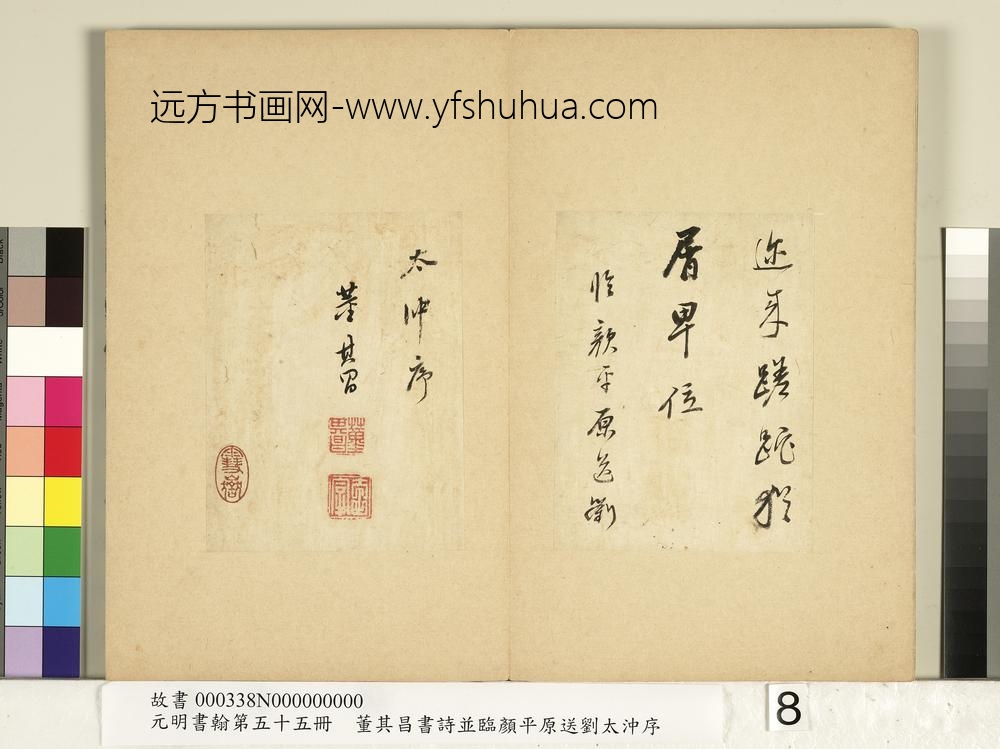 远方书画网-www.yfshuhua.com
迩來蹉跎猶
屑卑位
臨顏平原送劉
太沖序
董其昌
董其昌
故書 000338N000000000
元明書翰第五十五冊 董其昌書詩並臨顏平原送劉太沖序
8